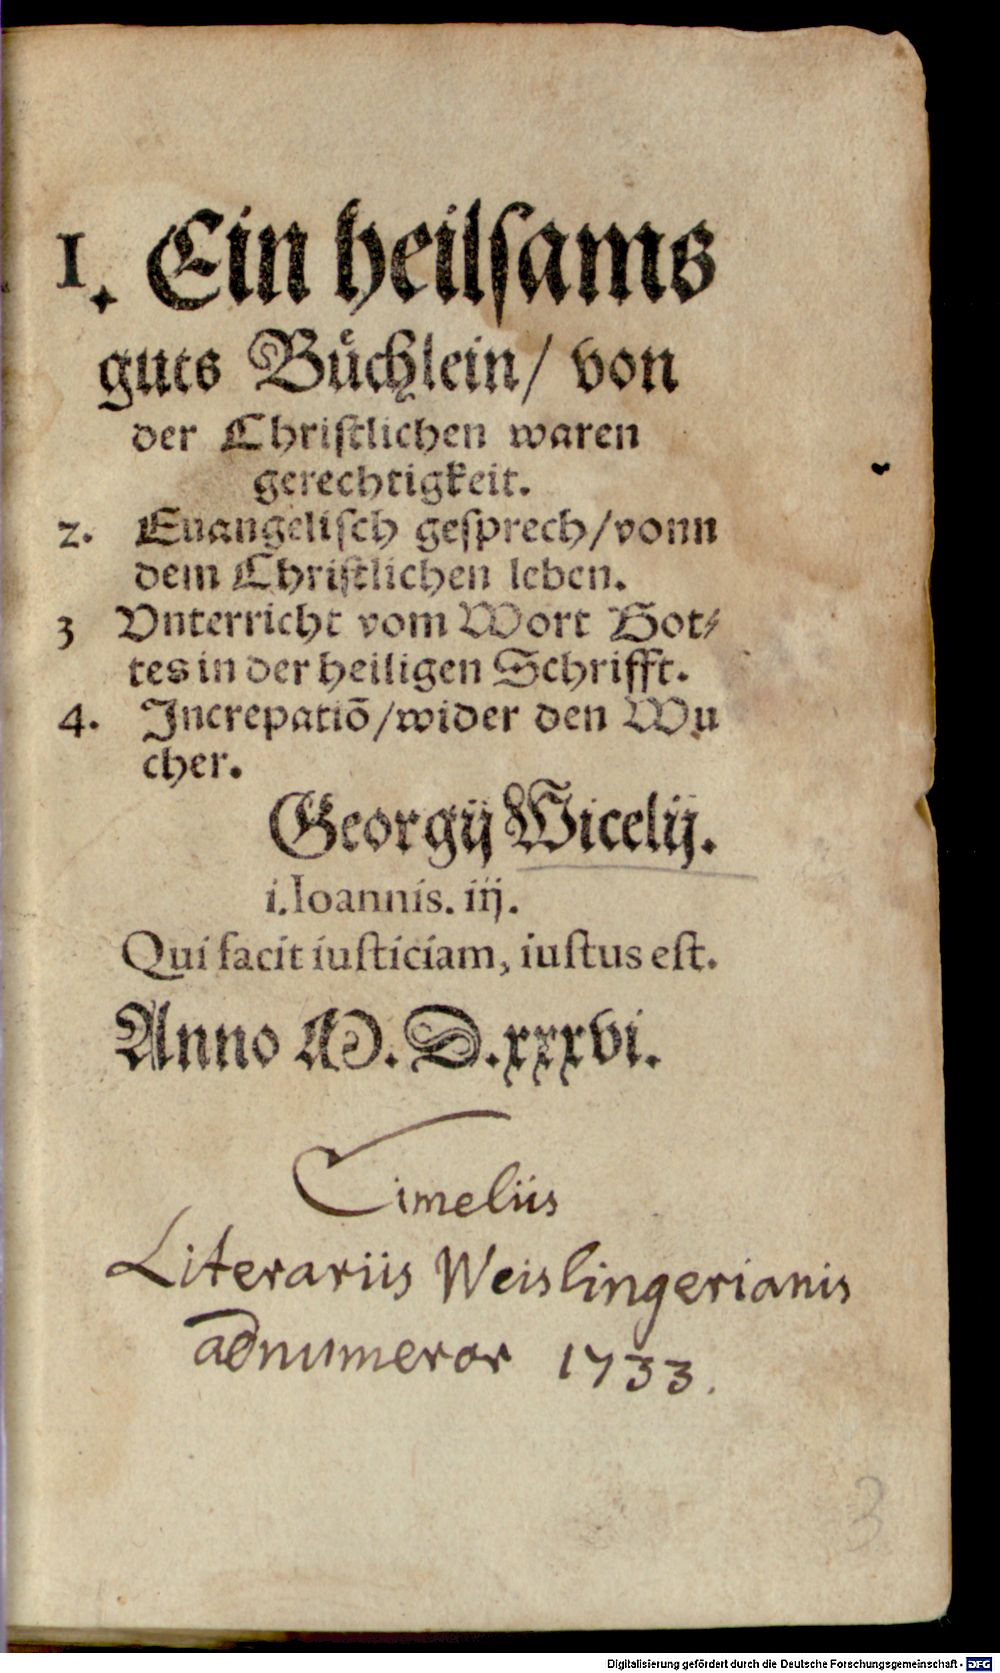 1. Ein heilſams
guts Bůchlein/ von
der Chriſtlichen waren
gerechtigkeit.
2. Euangeliſch geſprech/vonn
dem Chriſtlichen leben.
3 Vnterricht vom Wort Got⸗
tes in der heiligen Schrifft.
4. Increpatiō/wider den Wu
cher.
Georgij Wicelij.
i. Ioannis. iij.
Qui facit iuſticiam, iuſtus eſt.
Anno M. D. xxxvi.
Cimeliis
Literariis Weislingerianis
adnumeror 1733.
3
Digitalisierung gefördert durch die Deutsche Forschungsgemeinschaft - DFG